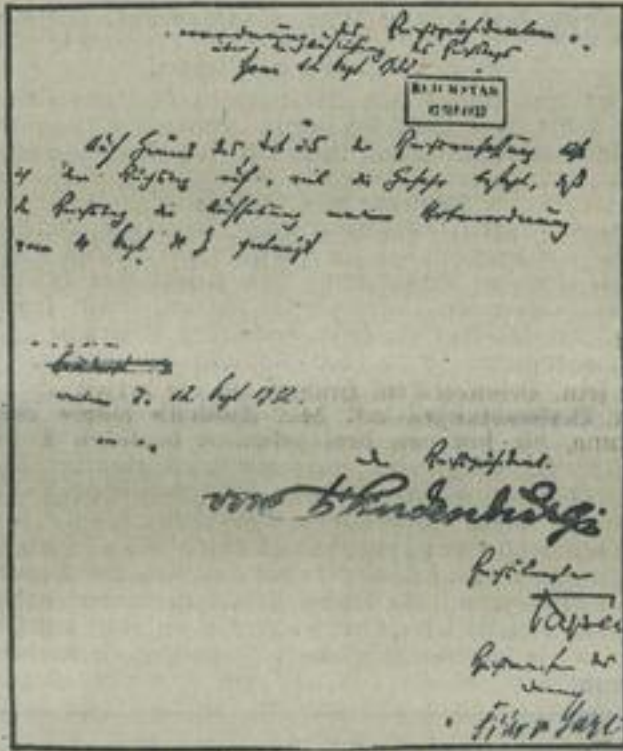 Verordnung des Reichspräsidenten
über die Auflösung des Reichstags
Vom 12 Sept 1932
REICHSTAG
Auf Grund des Art 25 der Reichsverfassung löse
ich den Reichstag auf, weil die Gefahr besteht, daß
der Reichstag die Aufhebung meiner Notverordnung
vom 4 Sept d J verlangt
d. 12 Sept 1932.
Der Reichspräsident.
von Hindenburg
Reichskanzler
Papen
Reichsminister des
Innern
Gayl